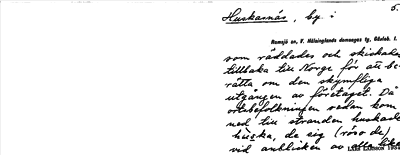 5.
Huskarnäs, by :
Ramsjö sn, V. Hälsinglands domsagas tg, Gävleb. l.
som räddades och skickades
tillbaka till Norge för att be-
rätta om den skymfliga
utgången av företaget. Då
ortsbefolkningen sedan kom
ned till stranden huskade
huska, de sig (röso de)
vid anblicken av alla lika